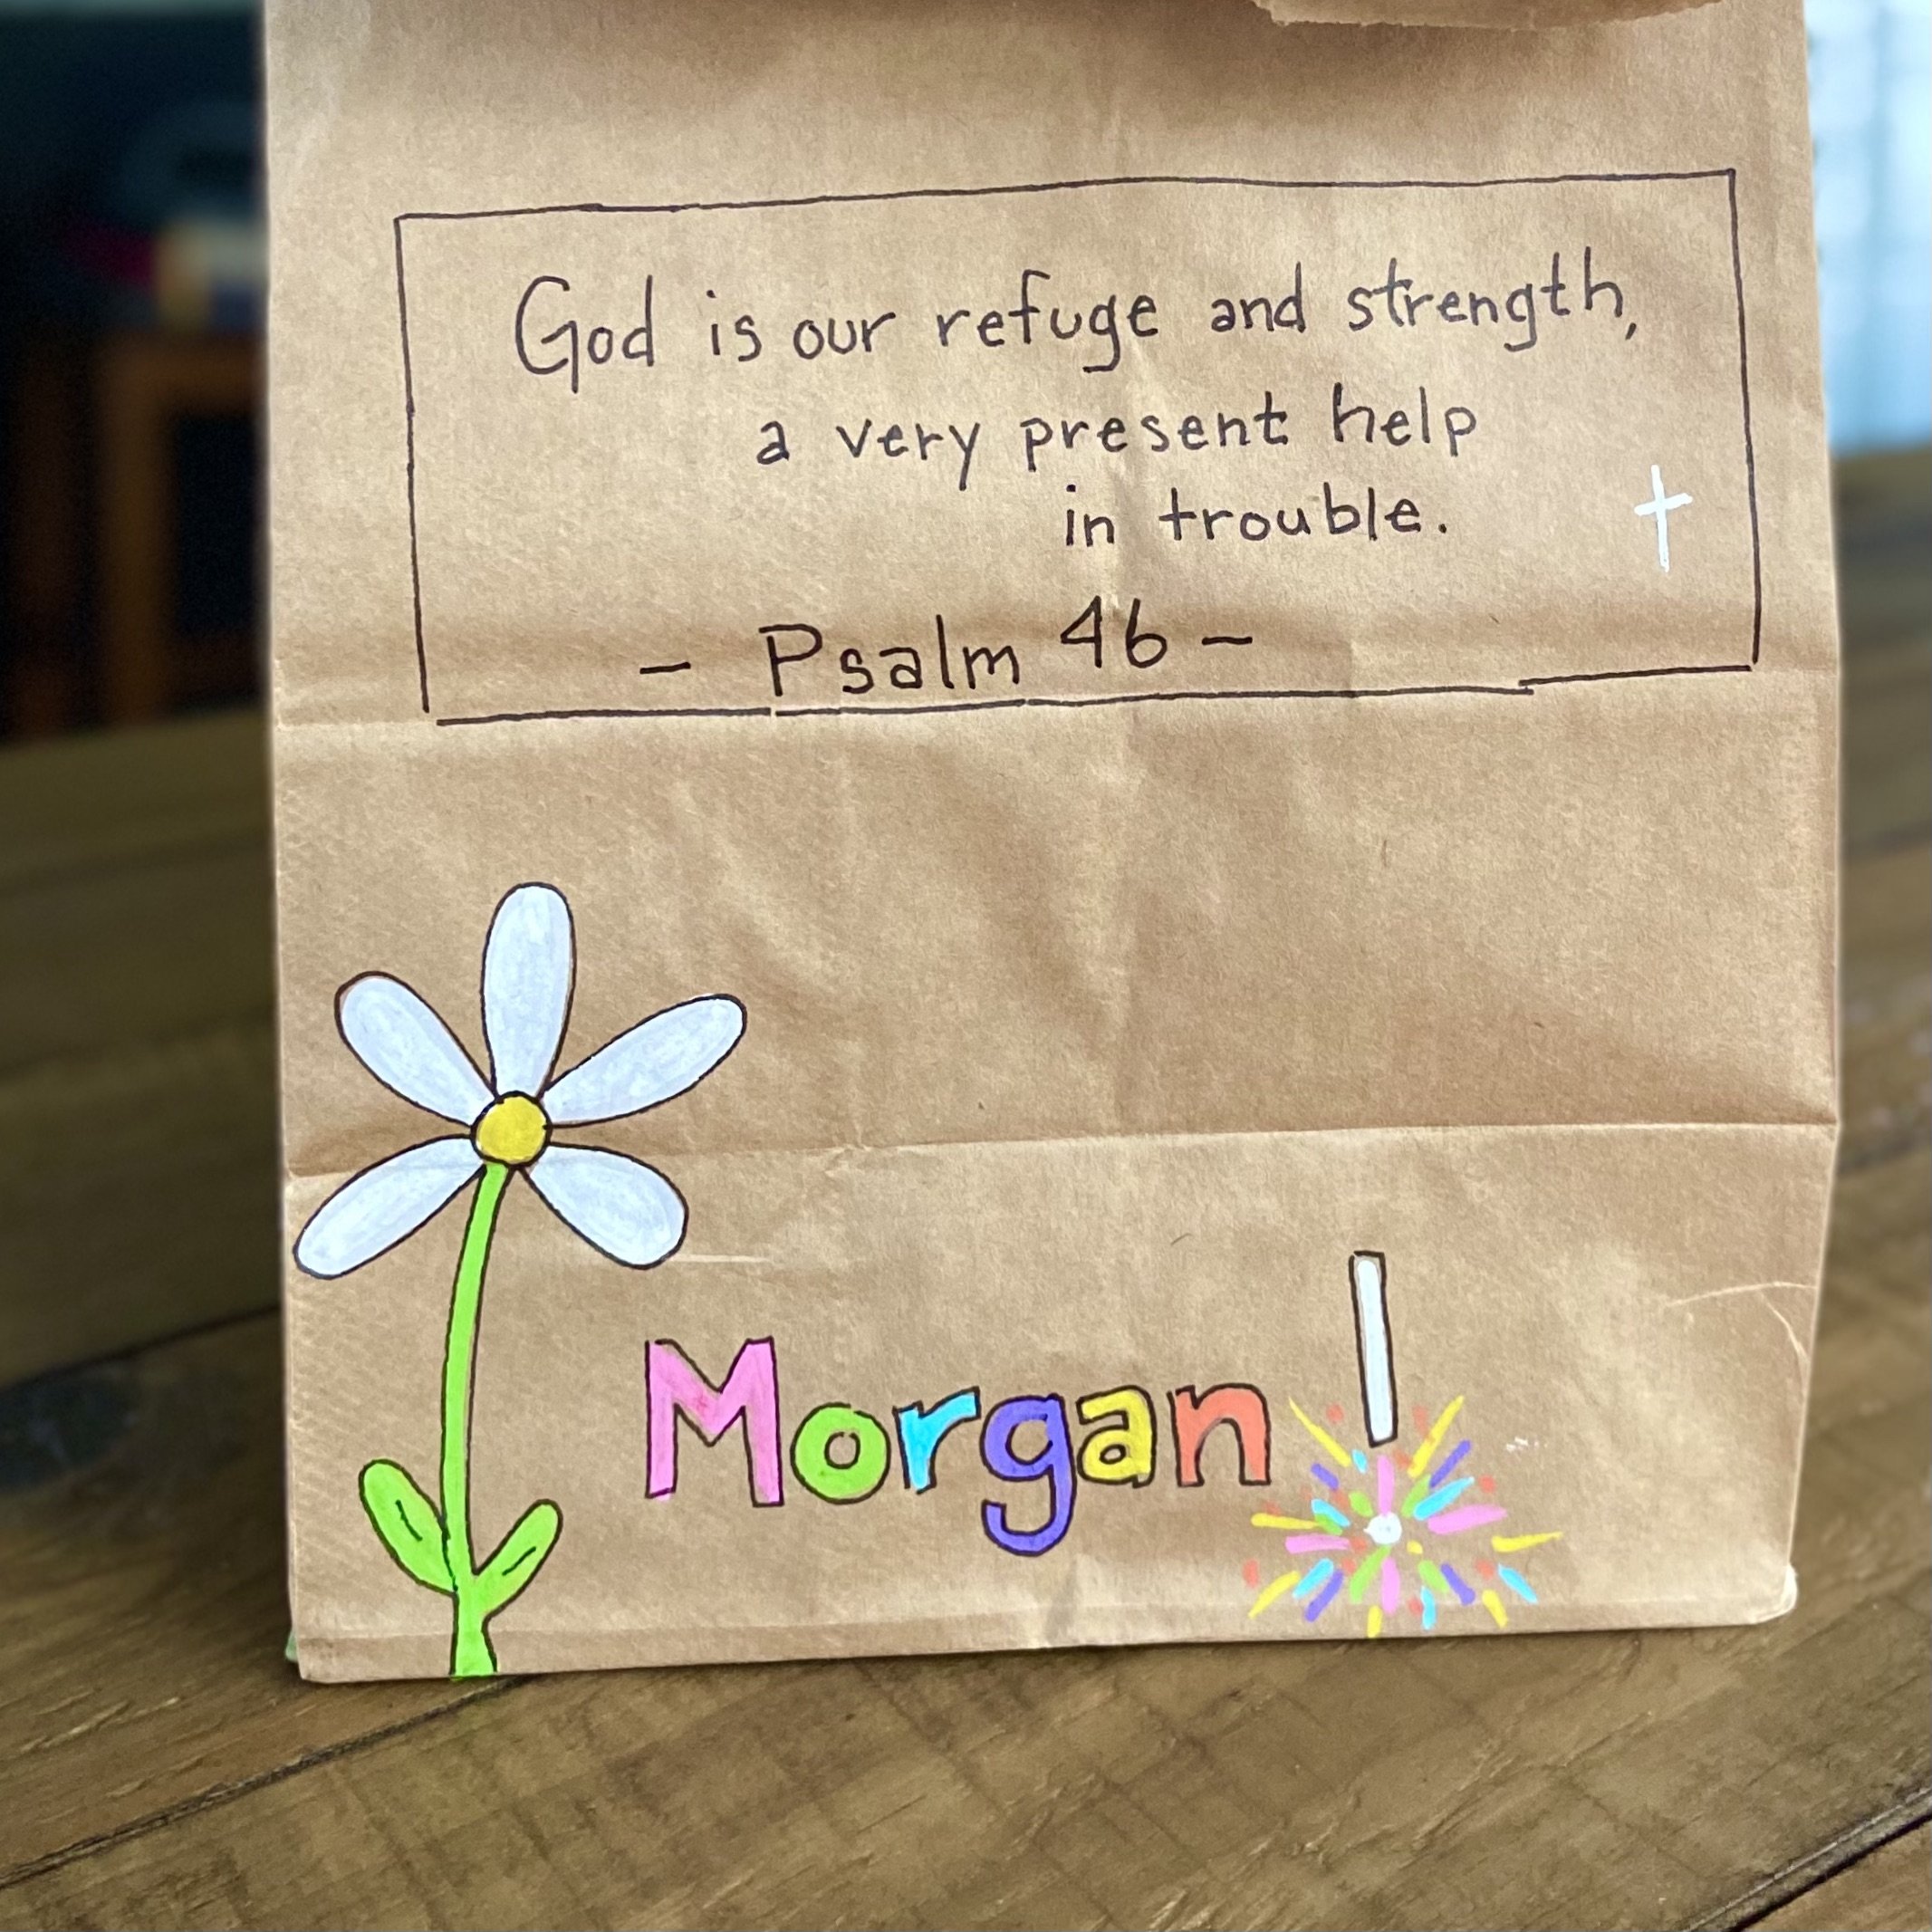 God is our refuge and strength,
a very present help
in trouble.
- Psalm 46 -
Morgan!